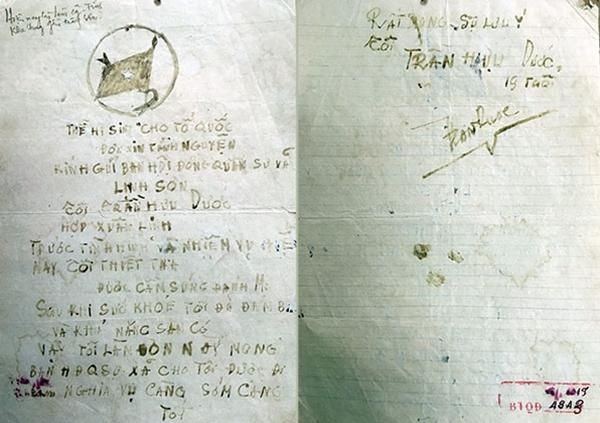 THỀ HI SINH CHO TỔ QUỐC
ĐƠN XIN TÌNH NGUYỆN
KÍNH GỬI BAN HỘI ĐỒNG QUÂN SỰ XÃ
LINH SƠN
TÔI TRẦN HỮU DƯỢC
HỢP XUÂN LINH
TRƯỚC TÌNH HÌNH VÀ NHIỆM VỤ
NAY TÔI THIẾT THA
ĐƯỢC CẦM SÚNG ĐÁNH M
SAU KHI SỨC KHOẺ TÔI ĐÃ ĐẢM B
VÀ KHẢ NĂNG SẴN CÓ
VẬY TÔI LÀM ĐƠN NÀY MONG
BAN HĐQSỰ XÃ CHO TÔI ĐƯỢC ĐI
NGHĨA VỤ CÀNG SỚM CÀNG
TỐT
RẤT MONG SỰ LƯU Ý
TÔI
TRẦN HỮU DƯỢC
19 TUỔI
BTQĐ